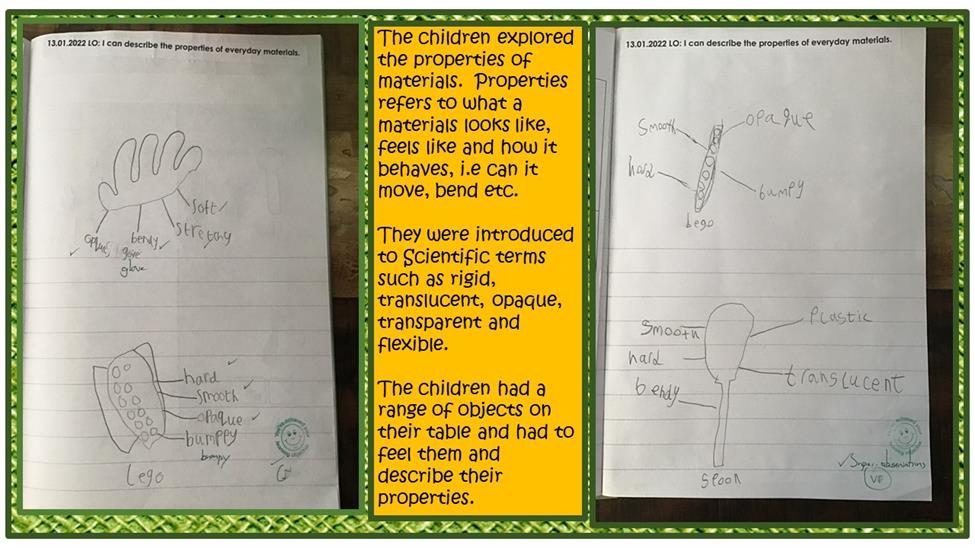 13.01.2022 LO: I can describe the properties of everyday materials.
soft
stretchy
bendy
glove
hard
smooth
opaque
bumppy
bumpy
Lego
The children explored
the properties of
materials. Properties
refers to what a
materials looks like,
feels like and how it
behaves, i.e can it
move, bend etc.
They were introduced
to Scientific terms
such as rigid,
translucent, opaque,
transparent and
flexible.
The children had a
range of objects on
their table and had to
feel them and
describe their
properties.
13.01.2022 LO: I can describe the properties of everyday materials.
Smooth
opaque
hard
bumpy
Lego
Smooth
Plastic
hard
translucent
bendy
Spoon
observations
VF